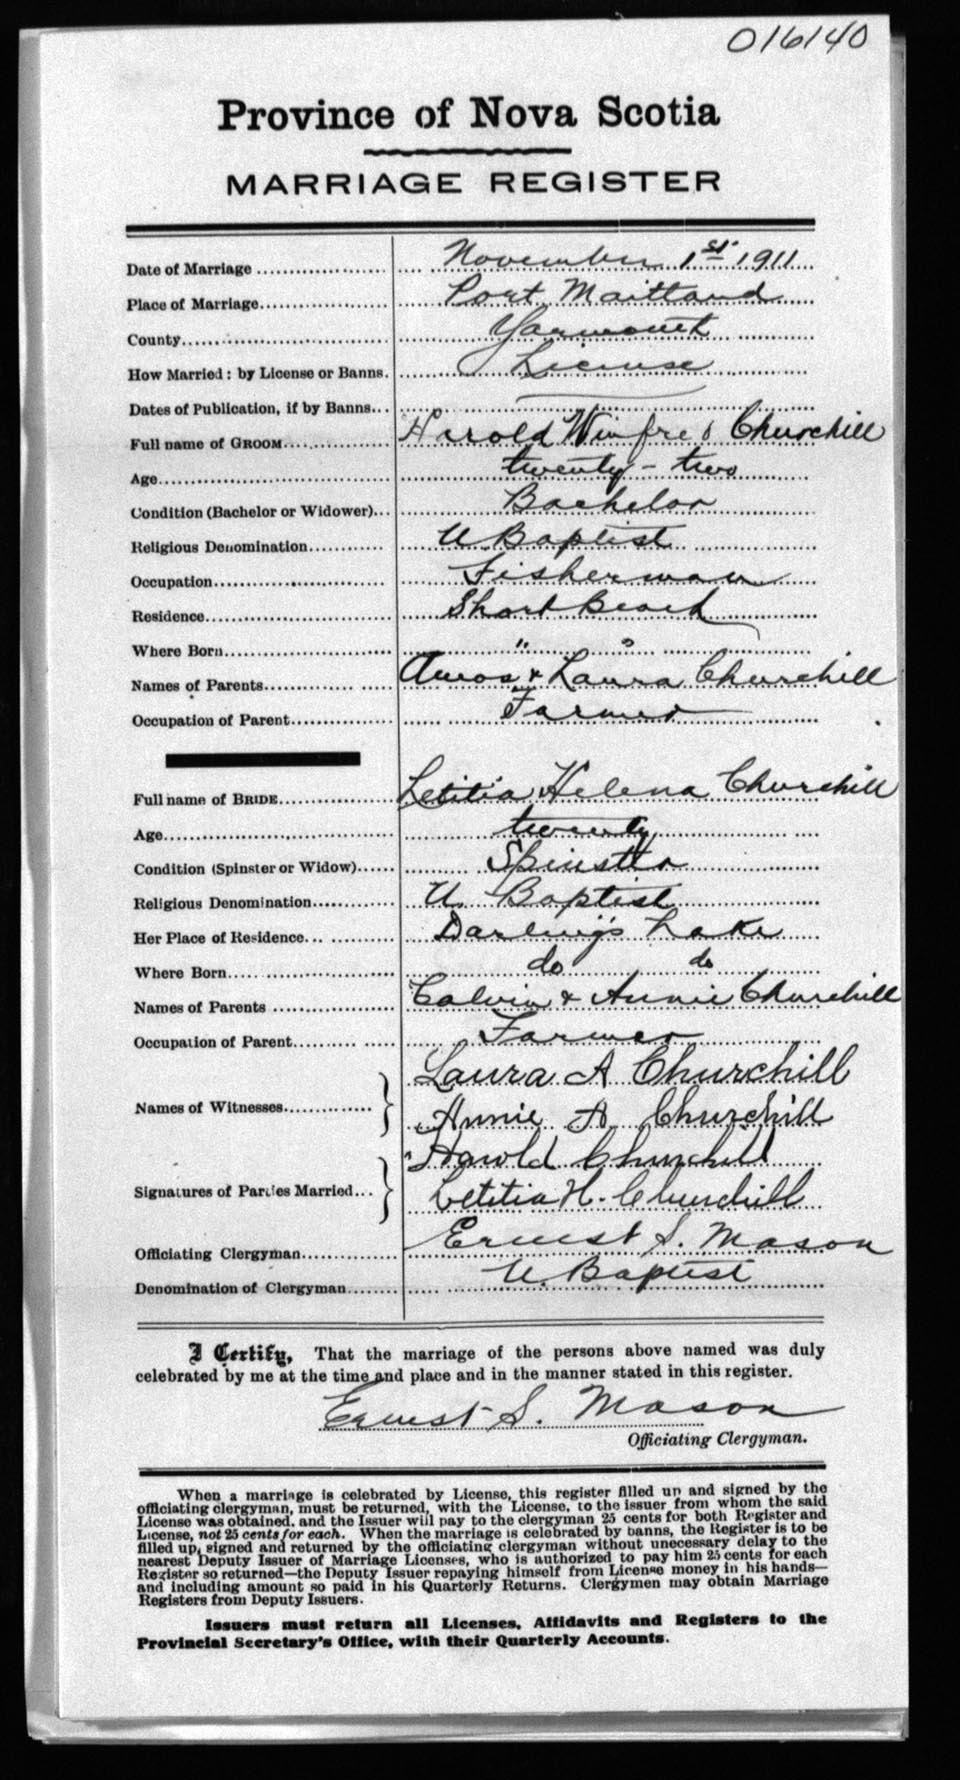 016140
Province of Nova Scotia
MARRIAGE REGISTER
Date of Marriage November 1st 1911
Place of Marriage Port Maitland
County Yarmouth
How Married: by License or Banns. License
Dates of Publication, if by Banns
Full name of GROOM Harold Winfred Churchill
Age twenty-two
Condition (Bachelor or Widower) Bachelor
Religious Denomination U. Baptist
Occupation Fisherman
Residence Short Beach
Where Born " "
Names of Parents Amos & Laura Churchill
Occupation of Parent Farmer
Full name of BRIDE Letitia Helena Churchill
Age twenty
Condition (Spinster or Widow) Spinster
Religious Denomination U. Baptist
Her Place of Residence Darling's Lake
Where Born do do
Names of Parents Calvin & Annie Churchill
Occupation of Parent Farmer
Names of Witnesses Laura A Churchill
Annie A. Churchill
Signatures of Parties Married Harold Churchill
Letitia H. Churchill
Officiating Clergyman Ernest S. Mason
Denomination of Clergyman U. Baptist
I Certify, That the marriage of the persons above named was duly
celebrated by me at the time and place and in the manner stated in this register.
Ernest S. Mason
Officiating Clergyman.
When a marriage is celebrated by License, this register filled up and signed by the
officiating clergyman, must be returned, with the License, to the issuer from whom the said
License was obtained, and the Issuer will pay to the clergyman 25 cents for both Register and
License, not 25 cents for each. When the marriage is celebrated by banns, the Register is to be
filled up, signed and returned by the officiating clergyman without unecessary delay to the
nearest Deputy Issuer of Marriage Licenses, who is authorized to pay him 25 cents for each
Register so returned—the Deputy Issuer repaying himself from License money in his hands—
and including amount so paid in his Quarterly Returns. Clergymen may obtain Marriage
Registers from Deputy Issuers.
Issuers must return all Licenses, Affidavits and Registers to the
Provincial Secretary's Office, with their Quarterly Accounts.